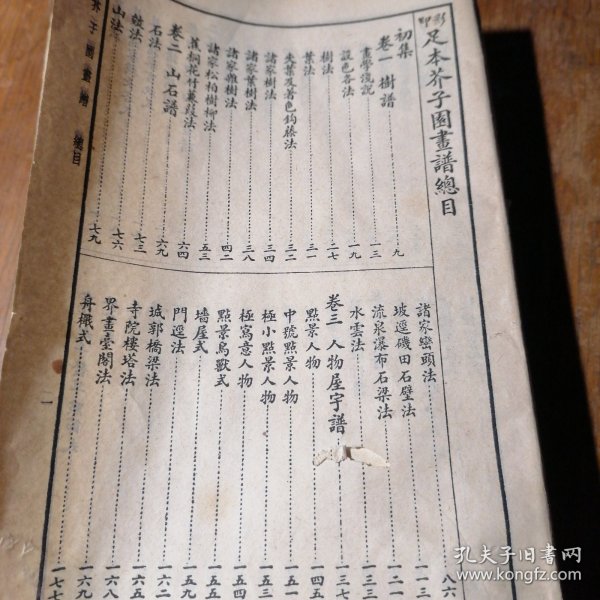 影印足本芥子園畫譜總目
初集
卷一 樹譜 九
畫學淺說 一三
設色各法 一九
樹法 二七
葉法 三一
夾葉及著色鈎藤法 三二
諸家樹法 三四
諸家葉樹法 三八
諸家雜樹法 四二
諸家松柏樹柳法 五三
蕉桐花竹蒹葭法 六四
卷二 山石譜 六九
石法 七三
皴法 七六
山法 七九
諸家巒頭法 八六
坡逕磯田石壁法 一一三
流泉瀑布石梁法 一二一
水雲法 一三三
卷三 人物屋宇譜 一三七
點景人物 一四五
中號點景人物 一五一
極小點景人物 一五三
極寫意人物 一五四
點景鳥獸式 一五五
墻屋式 一五九
門逕法 一六二
城郭橋梁法 一六五
寺院樓塔法 一六八
界畫臺閣法 一六九
舟檝式 一七七
芥子園畫譜 總目
一
孔夫子旧书网
www.kongfz.com